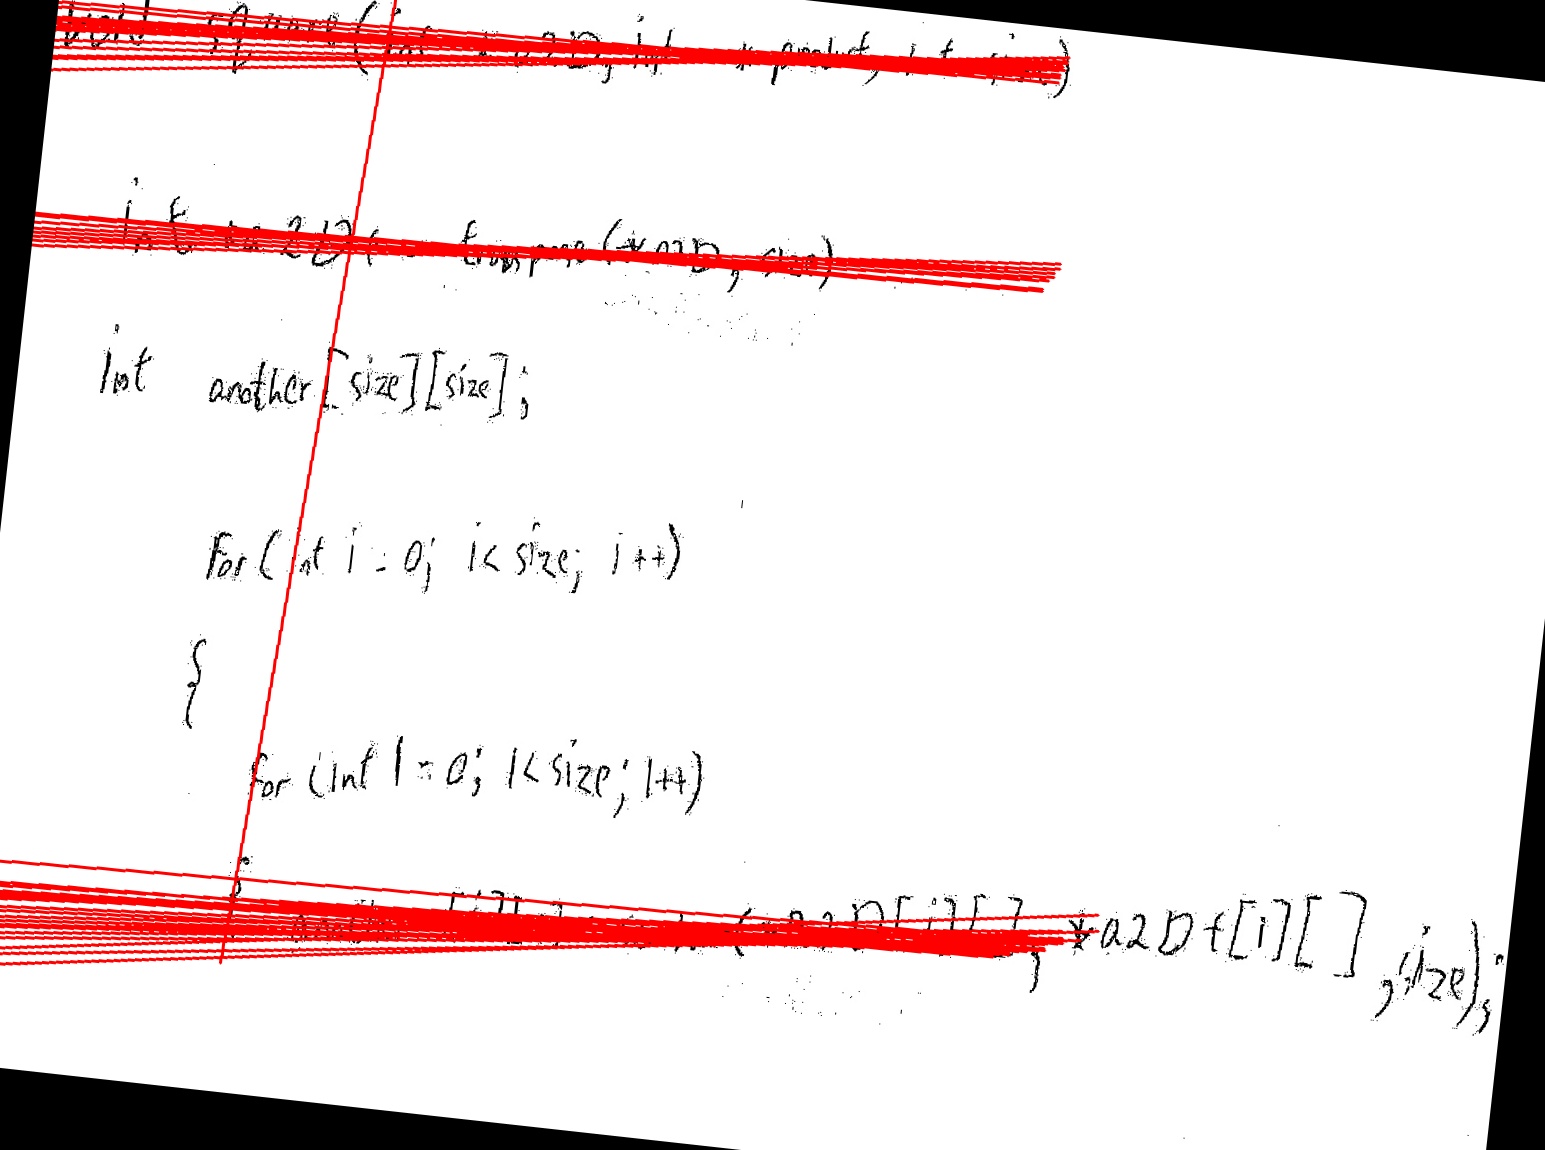 void square(int * a2D, int * product, int size)
int *a2Dt = transpose(*a2D, size)
int another[size][size];
For(int i = 0; i< size; i++)
{
for (int l = 0; l< size; l++)
*a2Dt[i][] ,size);